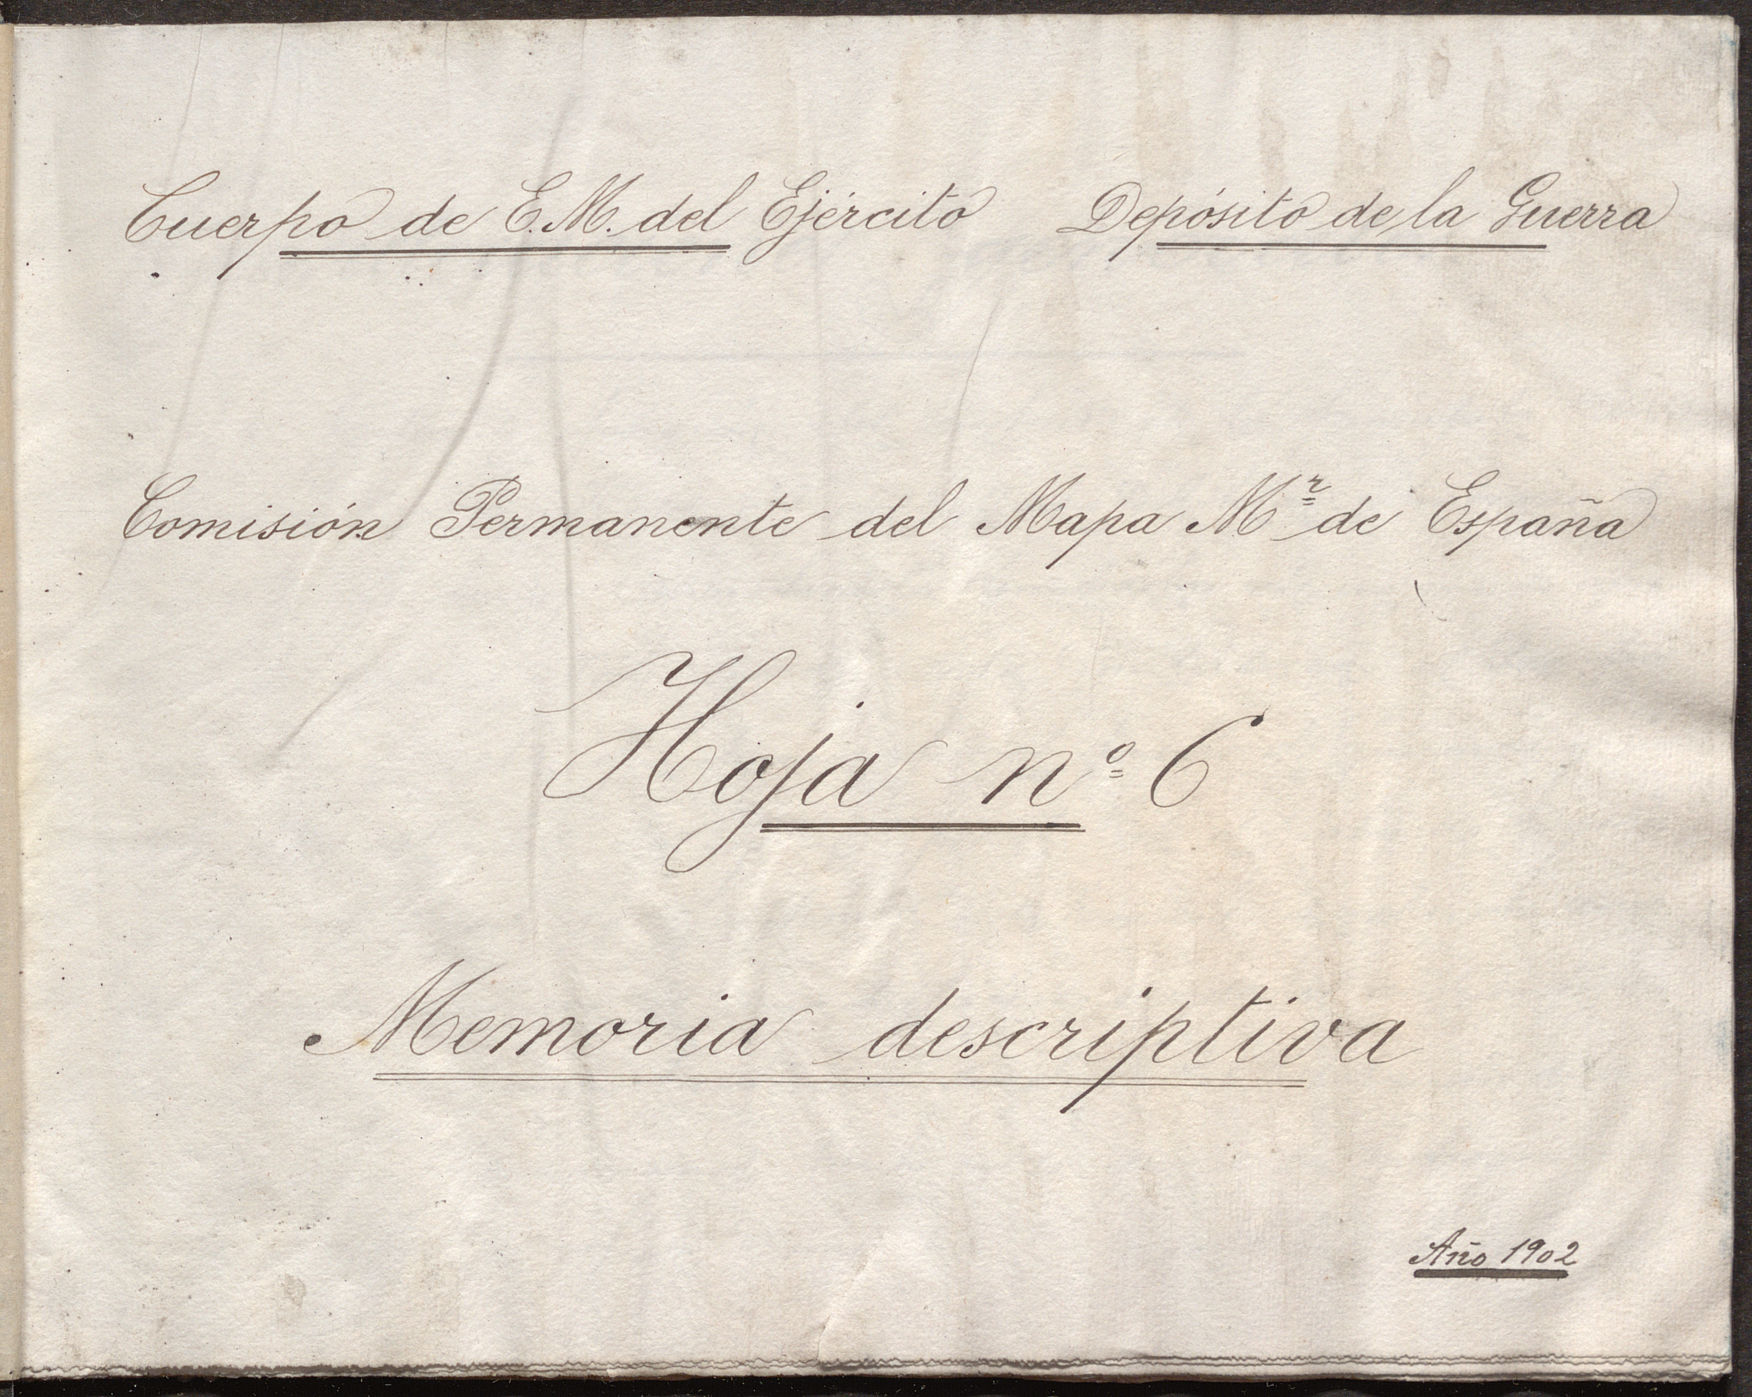 Cuerpo de E.M. del Ejército Depósito de la Guerra
Comisión Permanente del Mapa Mʳ de España
Hoja nº 6
Memoria descriptiva
Año 1902